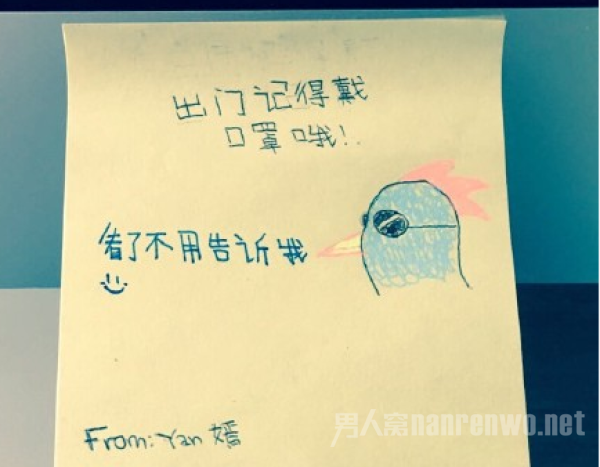 出门记得戴
口罩哦!.
看了不用告诉我
From: Yan 嫣
男人窝nanrenwo.net